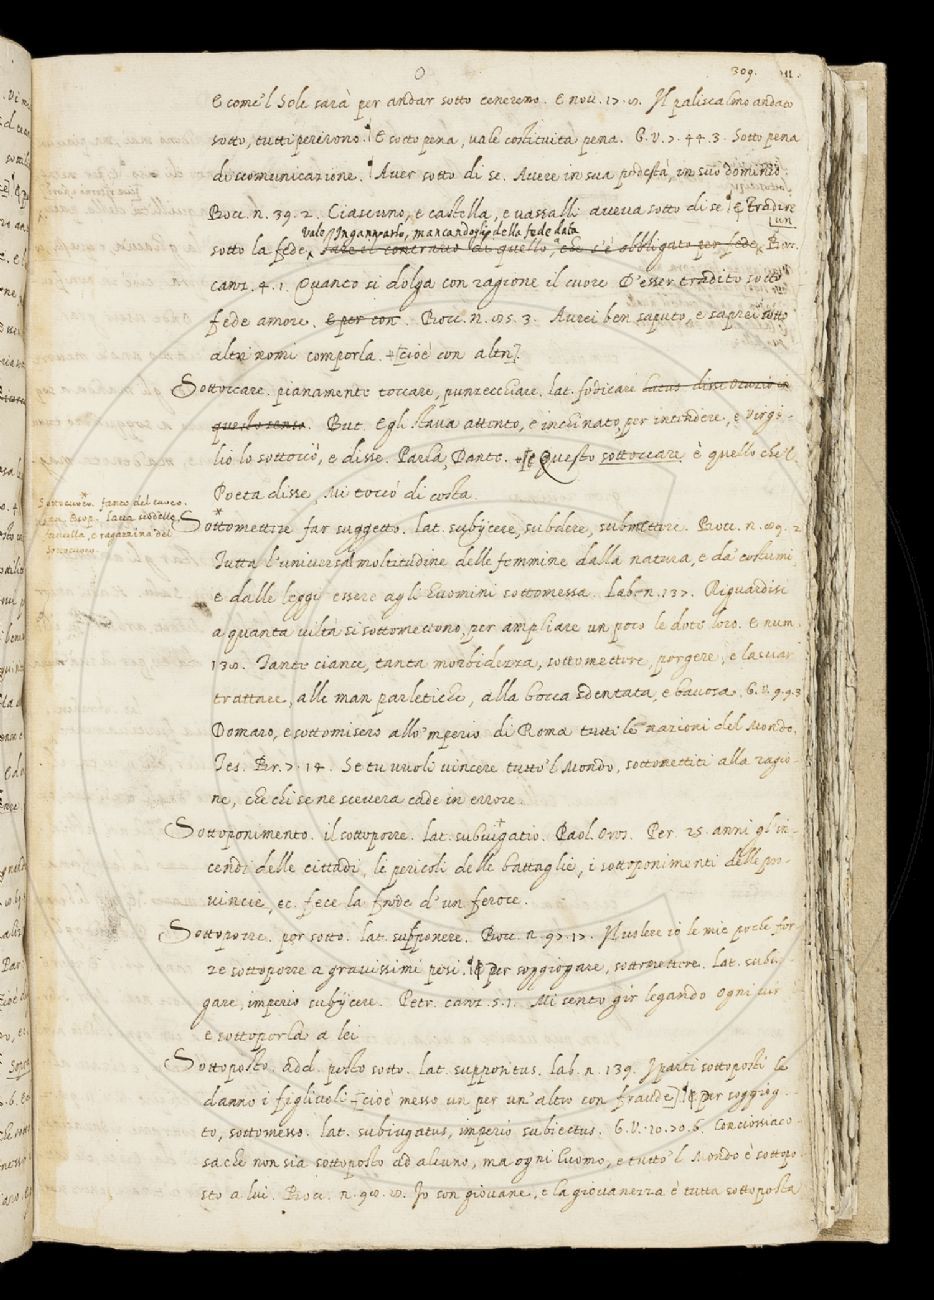 O 309.
E come 'l Sole sarà per andar sotto ceneremo. E nov. 17. 8. Il paliscalmo andato
sotto, tutti perirono. E sotto pena, vale costituita pena. G. V. 7. 44. 3. Sotto pena
di scomunicazione. Aver sotto di se. Avere in sua podestà, in suo dominio.
Bocc. n. 39. 2. Ciascuno, e castella, e vassalli aveva sotto di se. E Tradire
un
vale, Ingannarlo, mancandogli della fede data
sotto la fede, fare il contrario di quello, che s'è obbligato per fede, Bocc.
canz. 4. 1. Quanto si dolga con ragione il cuore D'esser tradito sotto
fede amore. E per con. Bocc. n. 85. 3. Avrei ben saputo, e saprei sotto
altri nomi comporla. cioè con altri.
Sottoccare. pianamente toccare, punzecchiare. lat. fodicare
questo senso. But. Egli stava attento, e inchinato, per intendere, e Virgi-
lio lo sottoccò, e disse. Parla, Dante. Questo sottoccare è quello che 'l
Poeta disse, Mi toccò di costa.
Sottocuoco. fante del cuoco.
Lava scodelle
fanciulla, e ragazzina del
sottocuoco.
Sottomettere far suggetto. lat. subijcere, subdere, submittere. Bocc. n. 89. 2
Tutta l'universal moltitudine delle femmine dalla natura, e da' costumi,
e dalle leggi essere agli huomini sottomessa. Lab. n. 137. Riguardisi
a quanta viltà si sottomettono, per ampliare un poco le doti loro. E num.
138. Tante ciance, tanta morbidezza, sottomettere, porgere, e lasciar
trattare, alle man parletiche, alla bocca sdentata, e bavosa. G. V. 9. 9. 3
Domaro, e sottomisero allo 'mperio di Roma tutte le nazioni del Mondo.
Tes. Br. 7. 14. Se tu vuoli vincere tutto 'l Mondo, sottomettiti alla ragio-
ne, che chi se ne scevera cade in errore.
Sottoponimento. il sottoporre. lat. subiugatio. Paol. Oros. Per 25 anni gl'in-
cendi delle cittadi, li pericoli delle battaglie, i sottoponimenti delle pro-
vincie, ec. fece la frode d'un feroce.
Sottoporre. por sotto. lat. supponere. Bocc. n. 97. 17. Il volere io le mie poche for-
ze sottoporre a gravissimi pesi. E per soggiogare, sottomettere. lat. subiu-
gare, imperio subijcere. Petr. canz. 5. 1. Mi sento gir legando ogni
e sottoporla a lei
Sottoposto. add. posto sotto. lat. suppositus. lab. n. 139. I parti sottoposti le
danno i figliuoli cioè messo un per un'altro con fraude E per soggioga-
to, sottomesso. lat. subiugatus, imperio subiectus. G. V. 10. 70. 6. Conciossiaco-
sa che non sia sottoposto ad alcuno, ma ogni huomo, e tutto 'l Mondo è sottopo-
sto a lui. Bocc. n. 98. 8. Io son giovane, e la giovanezza è tutta sottoposta